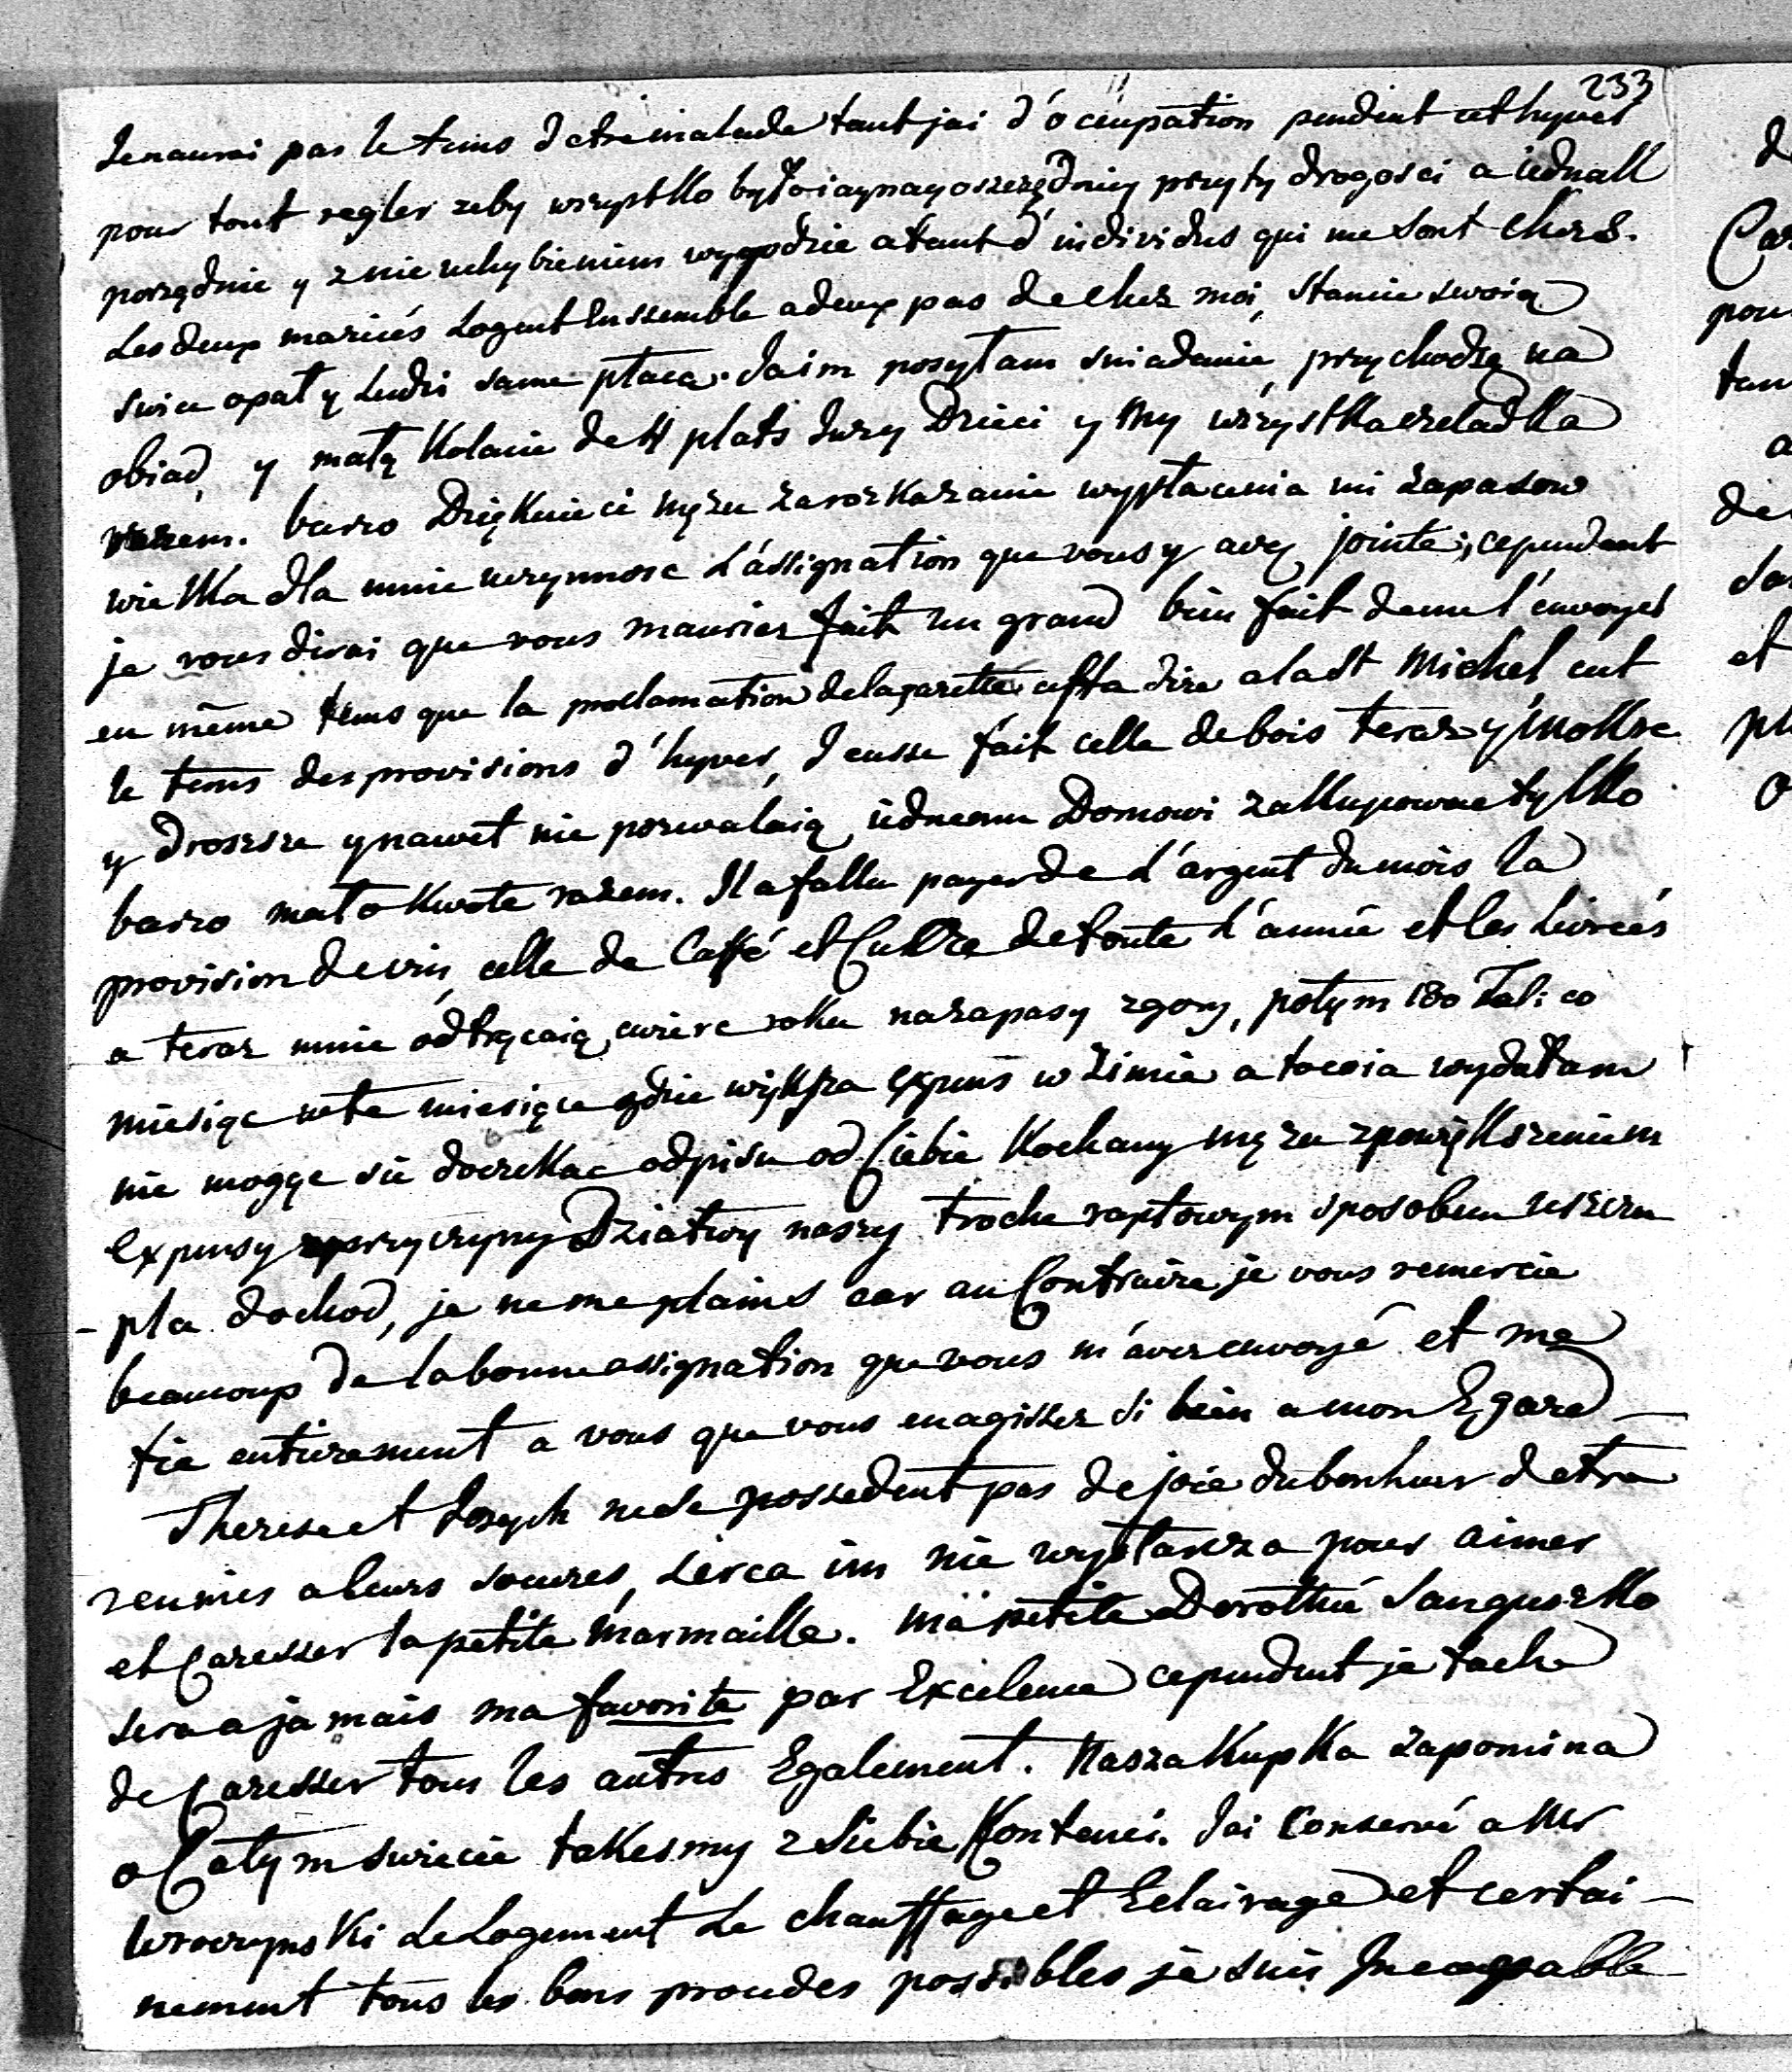 233
Jenaurai pas le tems detre malade tant jai d'ocupation pendent cet hyver
pour tout regler zeby wszystko było iaynayoszczędniy przyty drogosci a iednakk
porządnie y znie uchybieniem wygodzie atant d'individus qui me sont chers.
Les deux mariés Logent Enssemble a deux pas de chez moi, stancie swoią
swice opał y Ludzi same płacą. Ja im posyłam sniadanie, przychodzą na
obiad, y małą Kolacie de 4 plats Jurzy Dzieci y My wszystka czeladka
razem. barzo Dziękuie ci mężu zarozkazanie wypłacenia mi zapasow
wielka dla mnie uczynnosc L'assignation que vous y avez jointe; cependant
je vous dirai que vous mauriez fait un grand bien fait de me l'envoyer
en même tems que la proclamation de la gazette cest a dire a la St Michel cut
le tems des provisions d'hyver, J eusse fait celle de bois teraz y mokre
y drozsze y nawet nie pozwalaią iednemu Domowi zakupowac tylko
barzo mało kwote razem. Il a fallu payer de l'argent du mois la
provision de vin, celle de Caffé et Cukre de toute l'année et les Livrées
a teraz mnie odtrącaią cwierc roku na zapasy zgory, potym 180 Tal: co
miesiąc na te miesiące gdzie większa expens w Zimie a to co ia wydałam
nie mogąc sie doczekac odpisu od Ciebie Kochany mężu z powiększeniem
Expensy z przyczyny Dziatwy naszy troche raptowym sposobem uszczu
- pla dochod, je ne me plains car au Contraire je vous remercie
beaucoup de la bonne assignation que vous m'avez envoyé et me
fie entierement a vous que vous en agissez si bien a mon Egard -
Therese et Joseph ne se possedent pas de joie du bonheur detre
reunies a leurs soeures, serca im nie wystarcza pour aimer
et Caresser la petite marmaille. ma petite Dorothée Sanguszko
sera a jamais ma favorite par Excelence cependent je tache
de Caresser tous les autres Egalement. Nasza Kupka zapomina
o Całym swiecie takesmy z Siebie Kontenci. Jai Conservé a Mr
le Logement Le chauffage et Eclairage et certai -
nement tous les bons possibles je suis Incapable